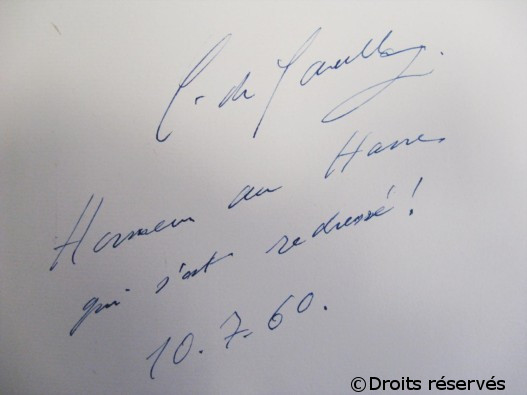 C. de Gaulle.
Honneur au Havre
qui s'est redressé !
10.7.60.
©Droits réservés